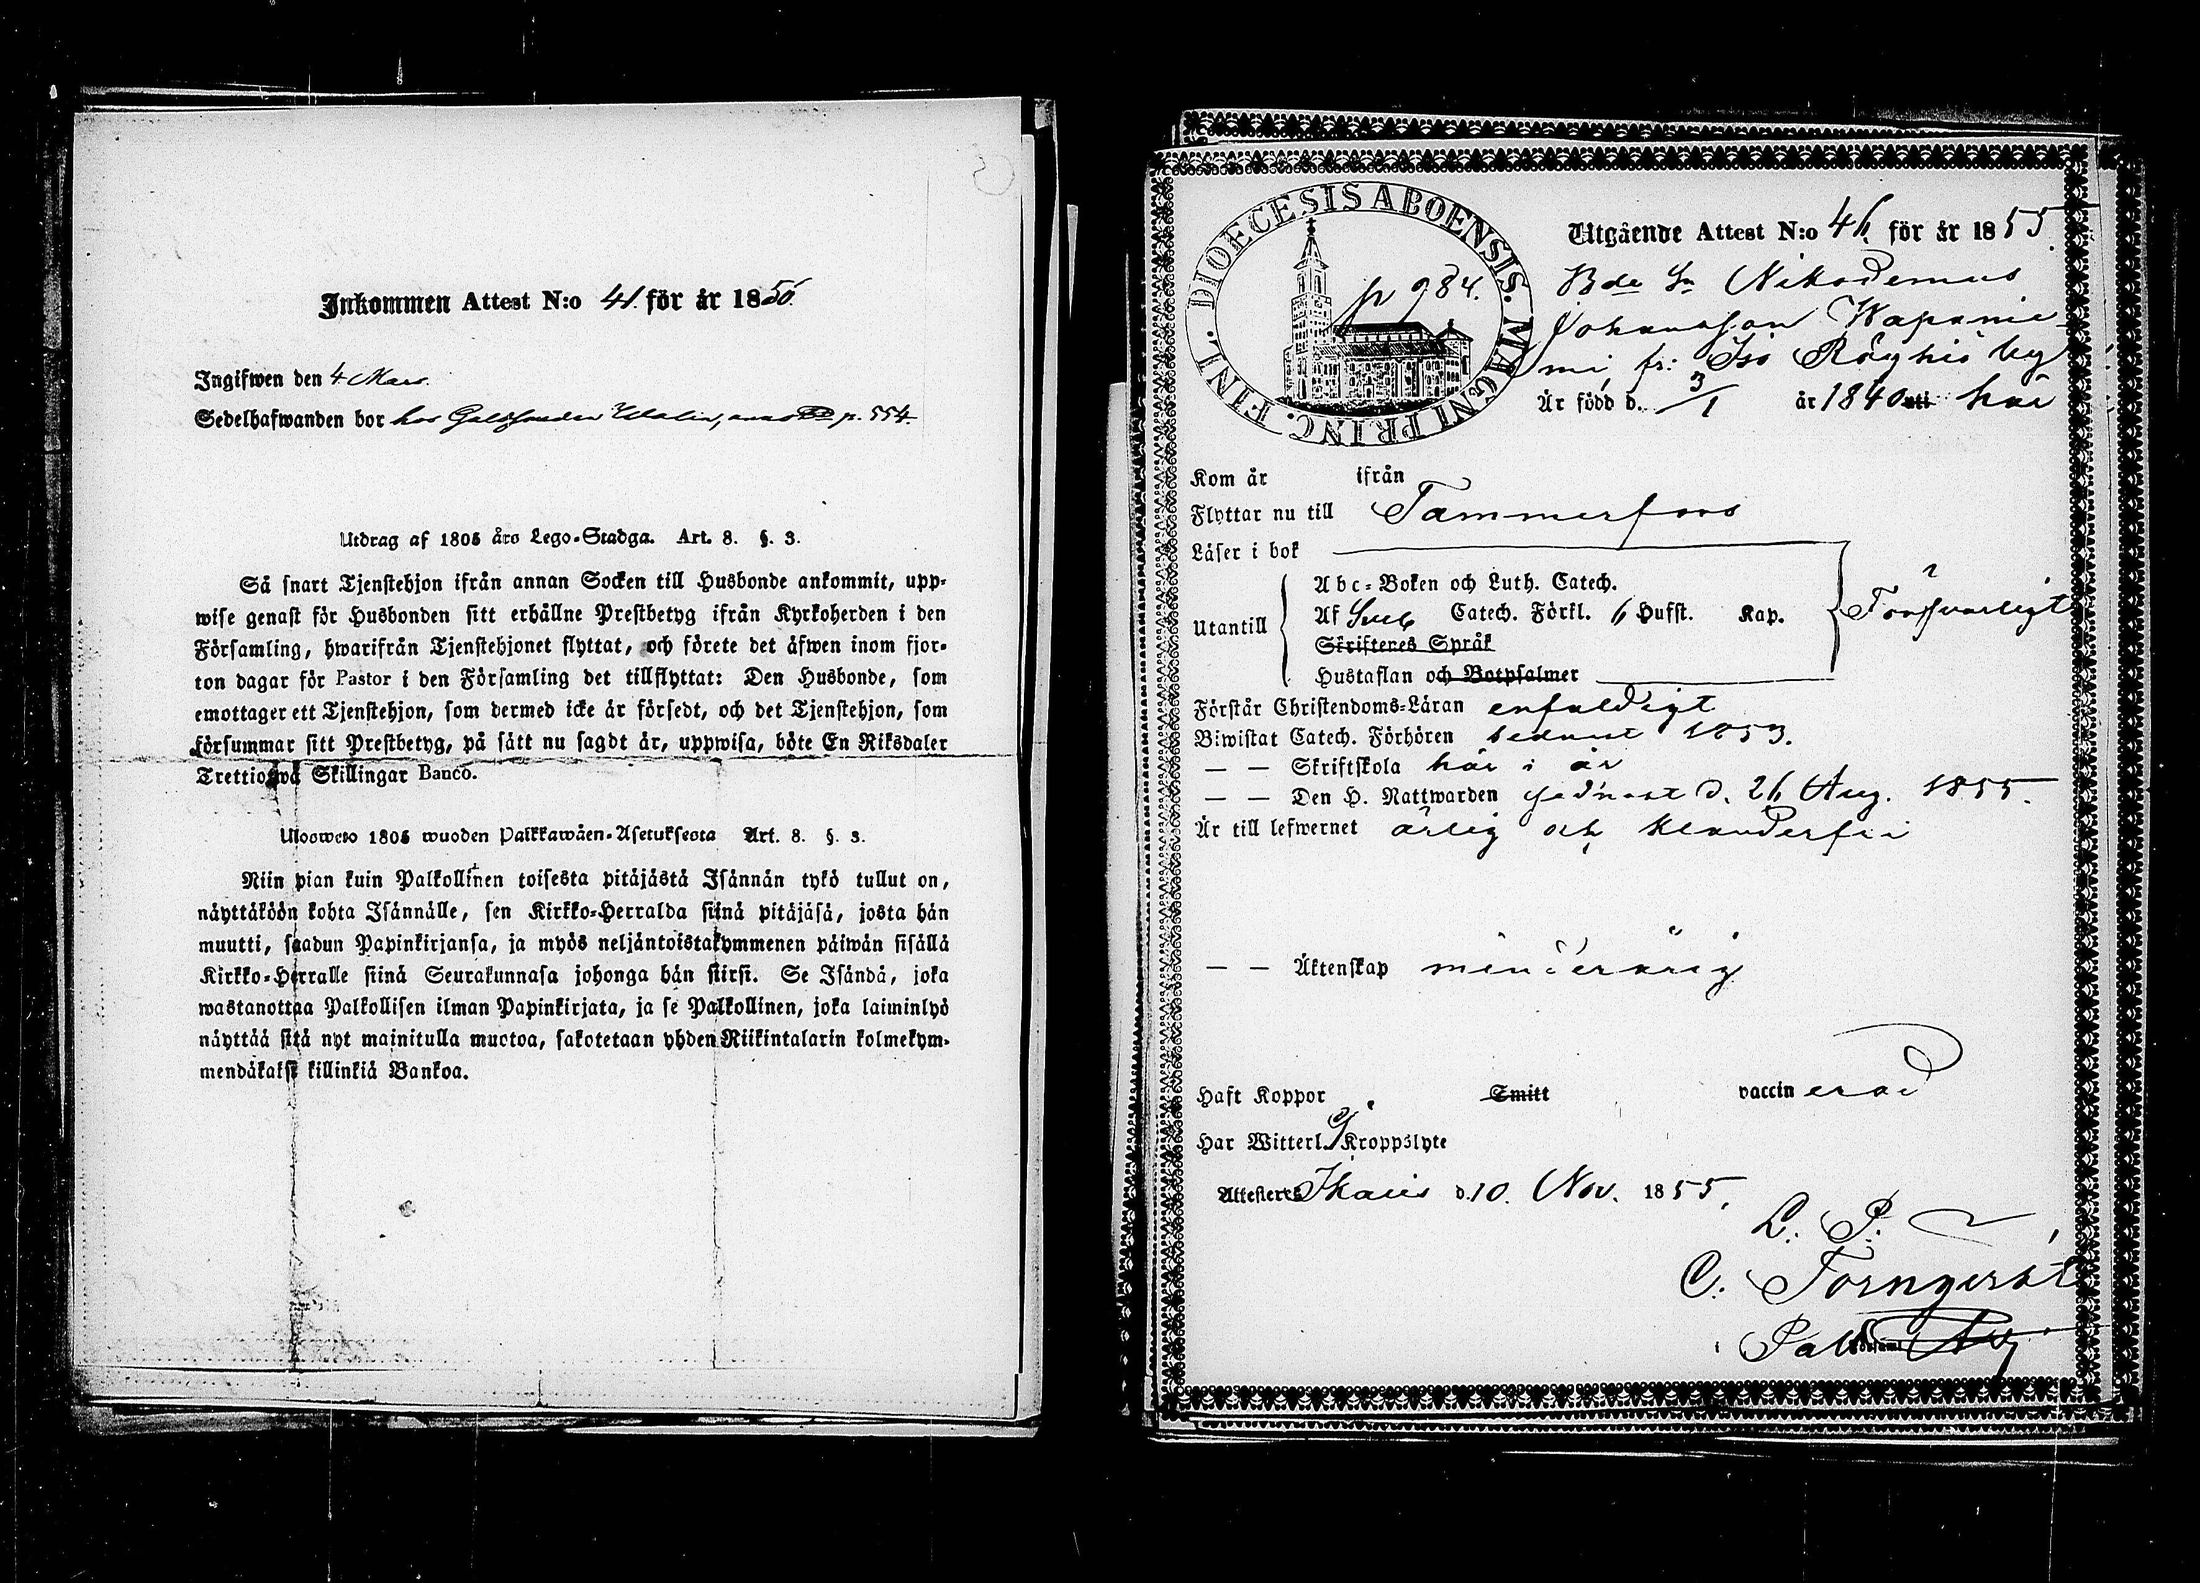 Inkommen Attest N:o 41. för år 1856.
Ingifwen den 4 Mars.
Sedelhafwanden bor hos p. 554.
Utdrag af 1805 års Lego-Stadga. Art. 8. §. 3.
Så snart Tjenstehjon ifrån annan Socken till Husbonde ankommit, upp-
wise genast för Husbonden sitt erhållne Prestbetyg ifrån Kyrkoherden i den
Församling, hwarifrån Tjenstehjonet flyttat, och förete det äfwen inom fjor-
ton dagar för Pastor i den Församling det tillflyttat: Den Husbonde, som
emottager ett Tjenstehjon, som dermed icke är försedt, och det Tjenstehjon, som
försummar sitt Prestbetyg, på sätt nu sagdt är, uppwisa, böte En Riksdaler
Trettiotwå Skillingar Banco.
Ulosweto 1805 wuoden Palkkawäen-Asetuksesta Art. 8. §. 3.
Niin pian kuin Palkollinen toisesta pitäjästä Isännän tykö tullut on,
näyttäköön kohta Isännälle, sen Kirkko-Herralda siinä pitäjäsä, josta hän
muutti, saadun Papinkirjansa, ja myös neljäntoistakymmenen päiwän sisällä
Kirkko-Herralle siinä Seurakunnasa johonga hän siirsi. Se Isändä, joka
wastanottaa Palkollisen ilman Papinkirjata, ja se Palkollinen, joka laiminlyö
näyttää sitä nyt mainitulla muotoa, sakotetaan yhden Riikintalarin kolmekym-
mendäkaksi killinkiä Bankoa.
DIOECESIS ABOENSIS. MAGNI PRINC. FINL.
p 984.
Utgående Attest N:o 46. för år 1855.
Bde Sn Nikodemus
Johansson Wapanie-
mi fr: Iso Röyhiö by
Är född d. 3/1 år 1840 uti här
Kom år ifrån
Flyttar nu till Tammerfors
Läser i bok
Utantill
Abc-Boken och Luth. Catech.
Af Sveb Catech. Förkl. 6 Hufst. Kap.
Skriftenes Språk
Hustaflan och Botpsalmer
Försvarligt
Förstår Christendoms-Läran enfaldigt
Biwistat Catech. Förhören sednast 1853.
— — Skriftskola här i år
— — Den H. Nattwarden sednast d. 26 Aug. 1855.
Är till lefwernet ärlig och klanderfri
— — Äktenskap minderårig
Haft Koppor Smitt vaccinerad
Har Witterl. ej Kroppslyte
Attesteres Ikalis d. 10. Nov. 1855.
L. P.
C. Forngerst